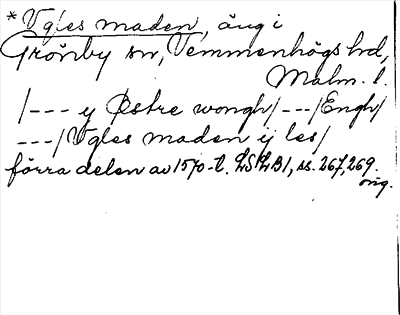 *Vgles maden, äng i
Grönby sn, Vemmenhögs hd,
Malm. l.
/--- y Østre wongh/---/Engh/
---/Vgles maden ij les/
förra delen av 1570-t. LSLB1, ss. 267, 269.
orig.